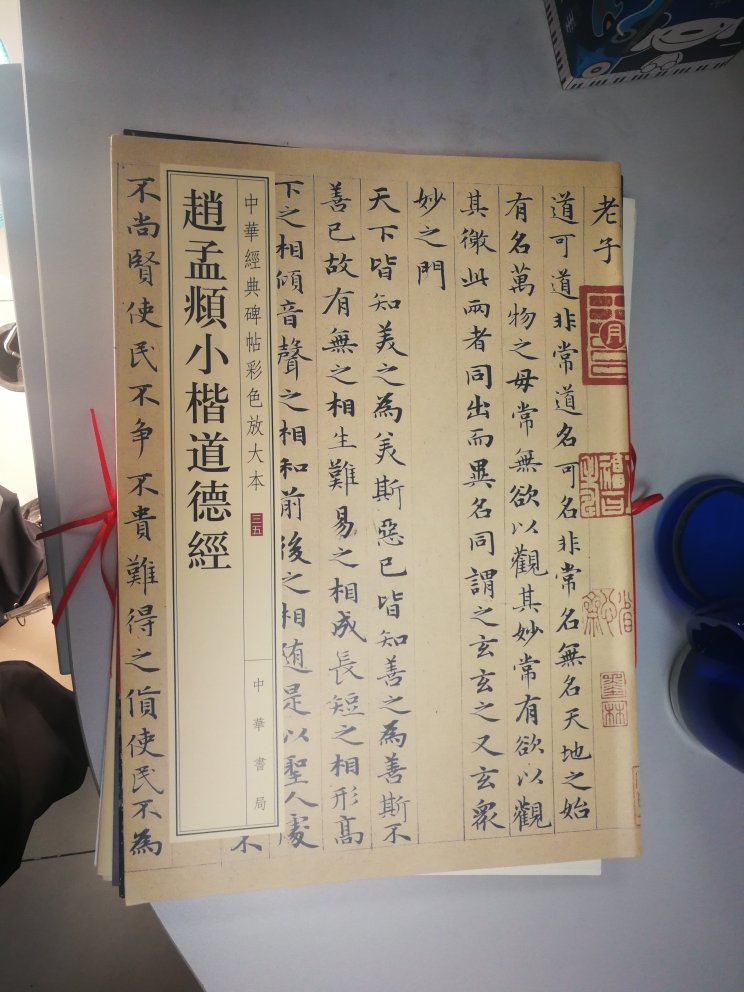 老子
道可道非常道名可名非常名無名天地之始
有名萬物之母常無欲以觀其妙常有欲以觀
其徼此兩者同出而異名同謂之玄玄之又玄衆
妙之門
天下皆知美之為美斯惡已皆知善之為善斯不
善已故有無之相生難易之相成長短之相形高
下之相傾音聲之相和前後之相随是以聖人處
不
中華經典碑帖彩色放大本 三五
中華書局
趙孟頫小楷道德經
不尚賢使民不争不貴難得之貨使民不為
墨林